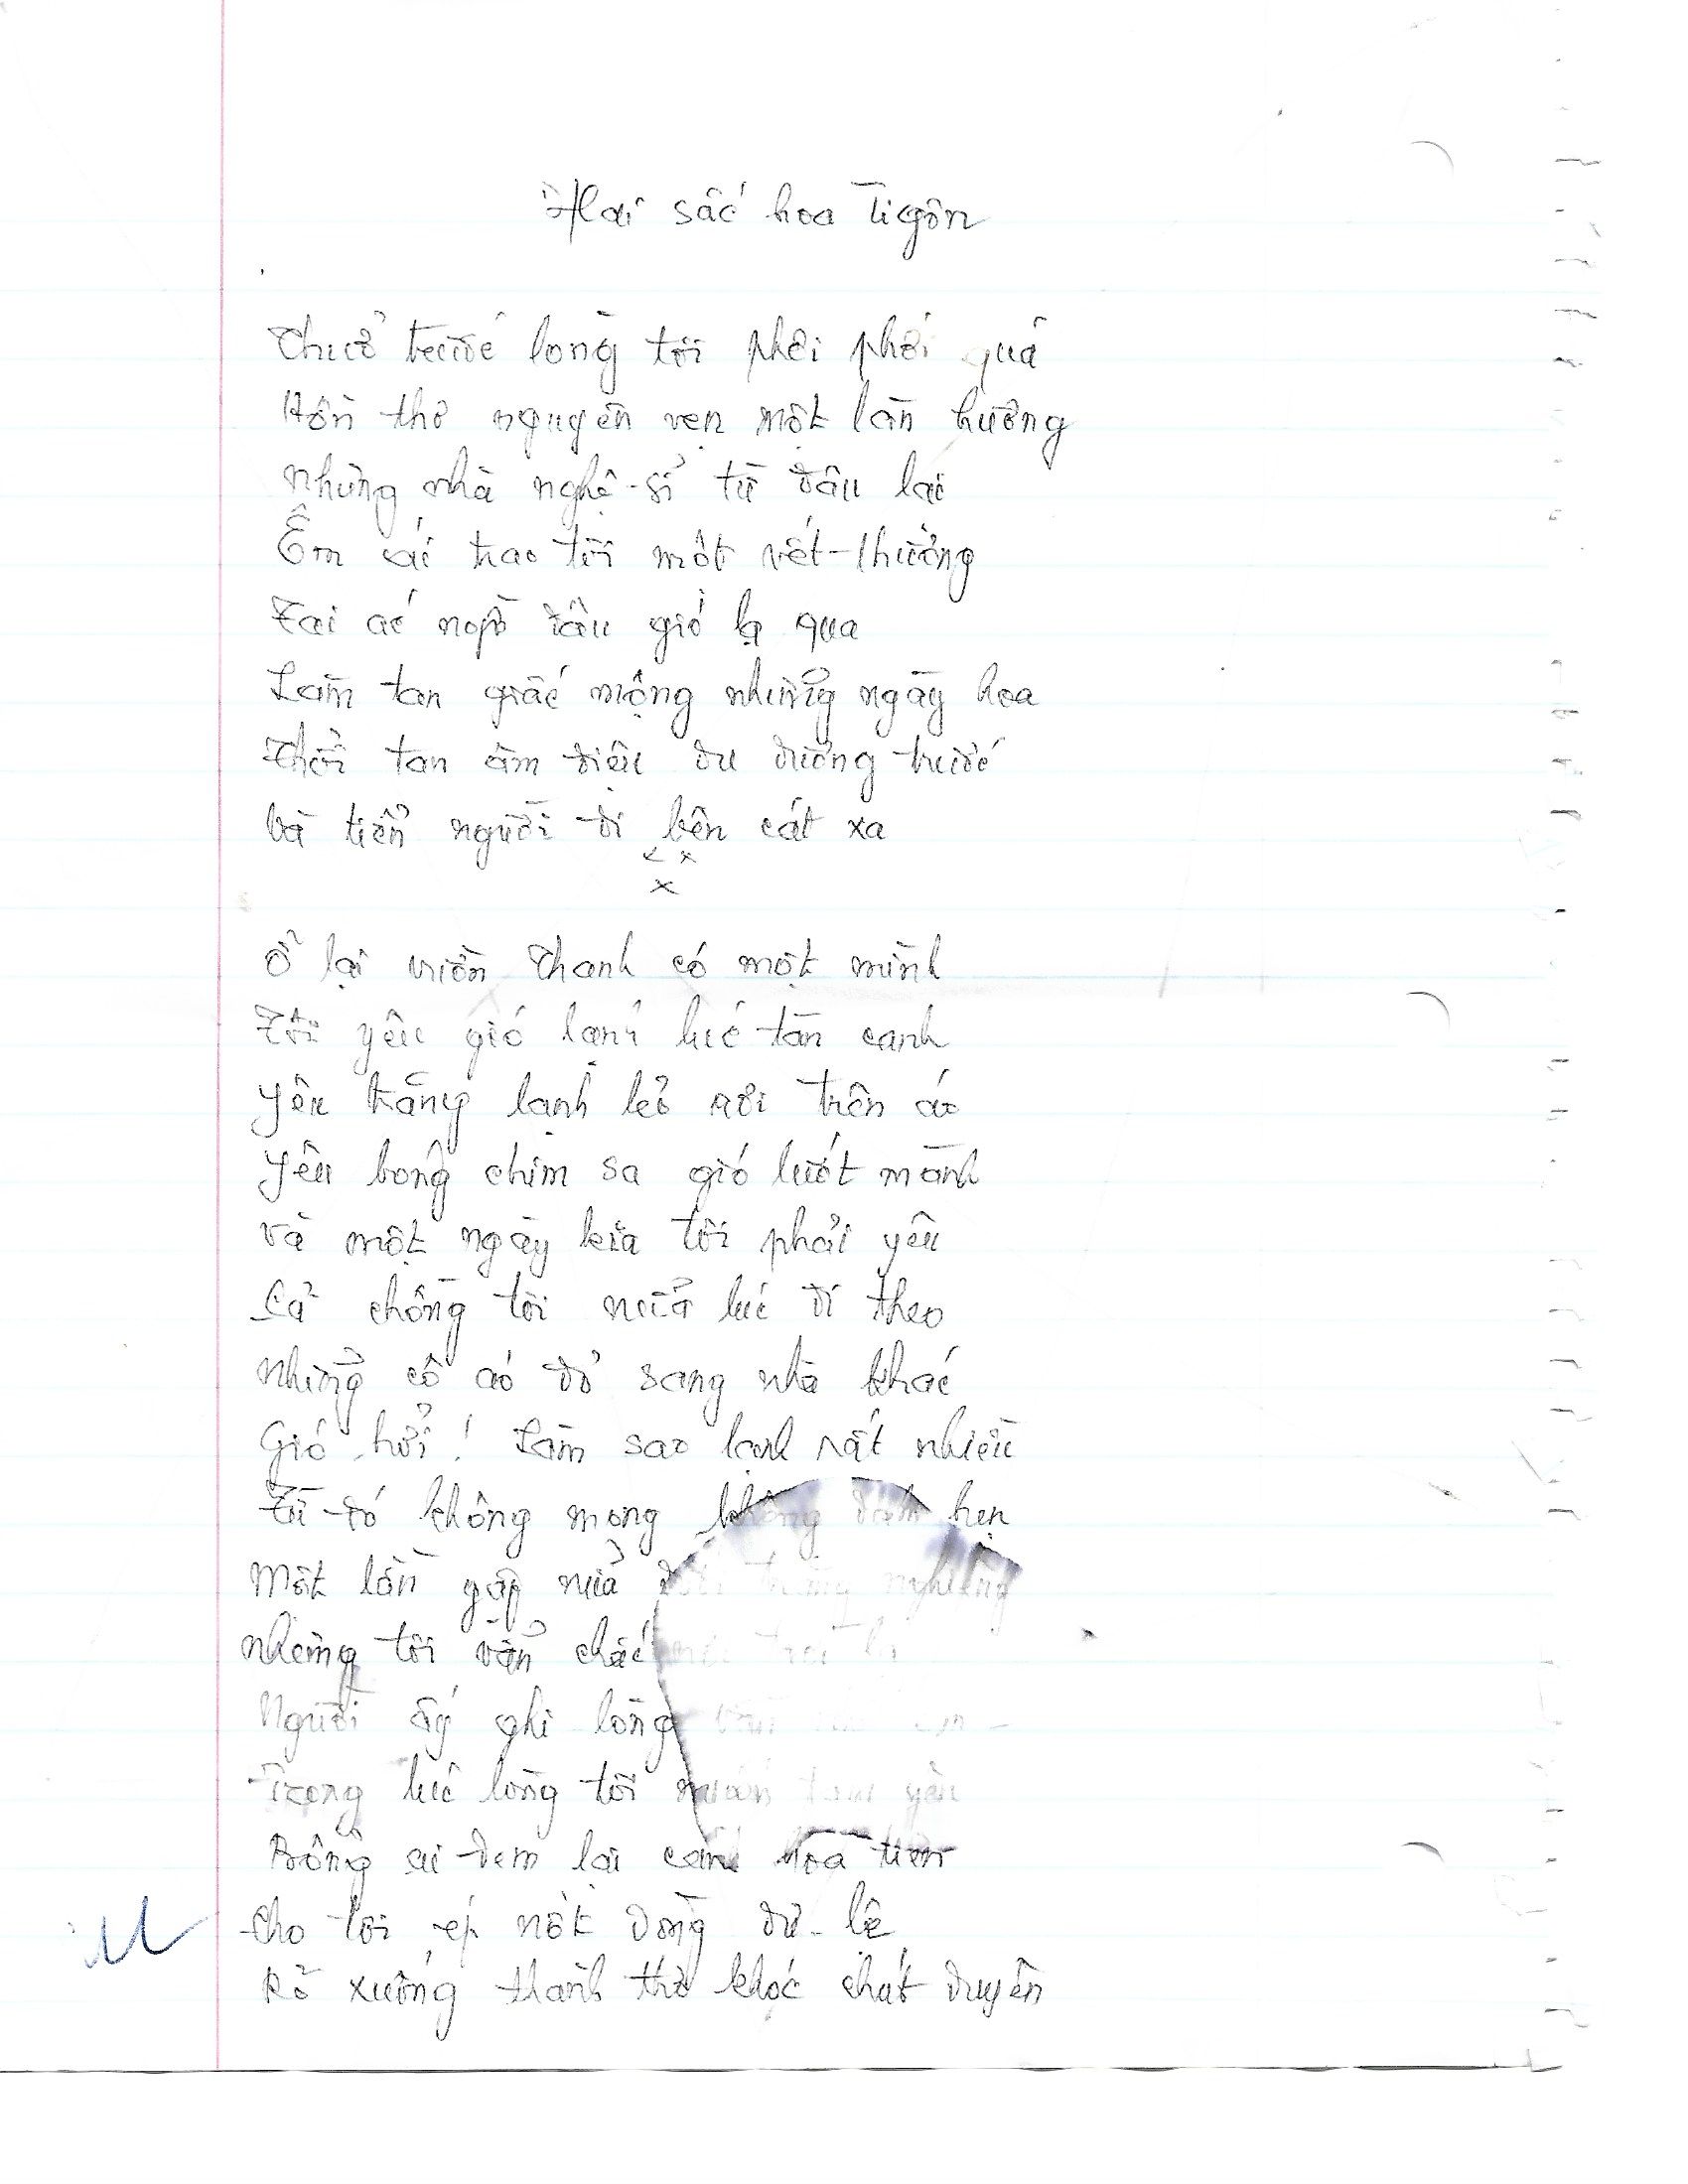 Hai sắc hoa Tigôn
Thuở trước lòng tôi phơi phới quá
Hồn thơ nguyên vẹn một làn hương
Những nhà nghệ-sĩ từ đâu lại
Êm ái trao tôi một vết-thương
Tai ác ngờ đâu gió lạ qua
Làm tan giấc mộng những ngày hoa
Thổi tan âm điệu du dương trước
Và tiển người đi bên cát xa
x x
x
Ở lại vườn Thanh có một mình
Tôi yêu gió lạnh lúc tàn canh
Yêu trăng lạnh lẻo rơi trên áo
Yêu bóng chim sa gió lướt mành
Và một ngày kia tôi phải yêu
Cả chồng tôi nữa lúc đi theo
Những cô áo đỏ sang nhà khác
Gió hởi! Làm sao lạnh rất nhiều
Từ-đó không mong không hẹn
Một lần gặp nữa nghiêng
Nhưng tôi vẫn chắc
Người ấy ghi lòng
Trong lúc lòng tôi muốn tạm yên
Bổng ai đem lại cánh hoa tim
Cho tôi ép nốt dòng dư lệ
Rỏ xuống thành thơ khóc chút duyên